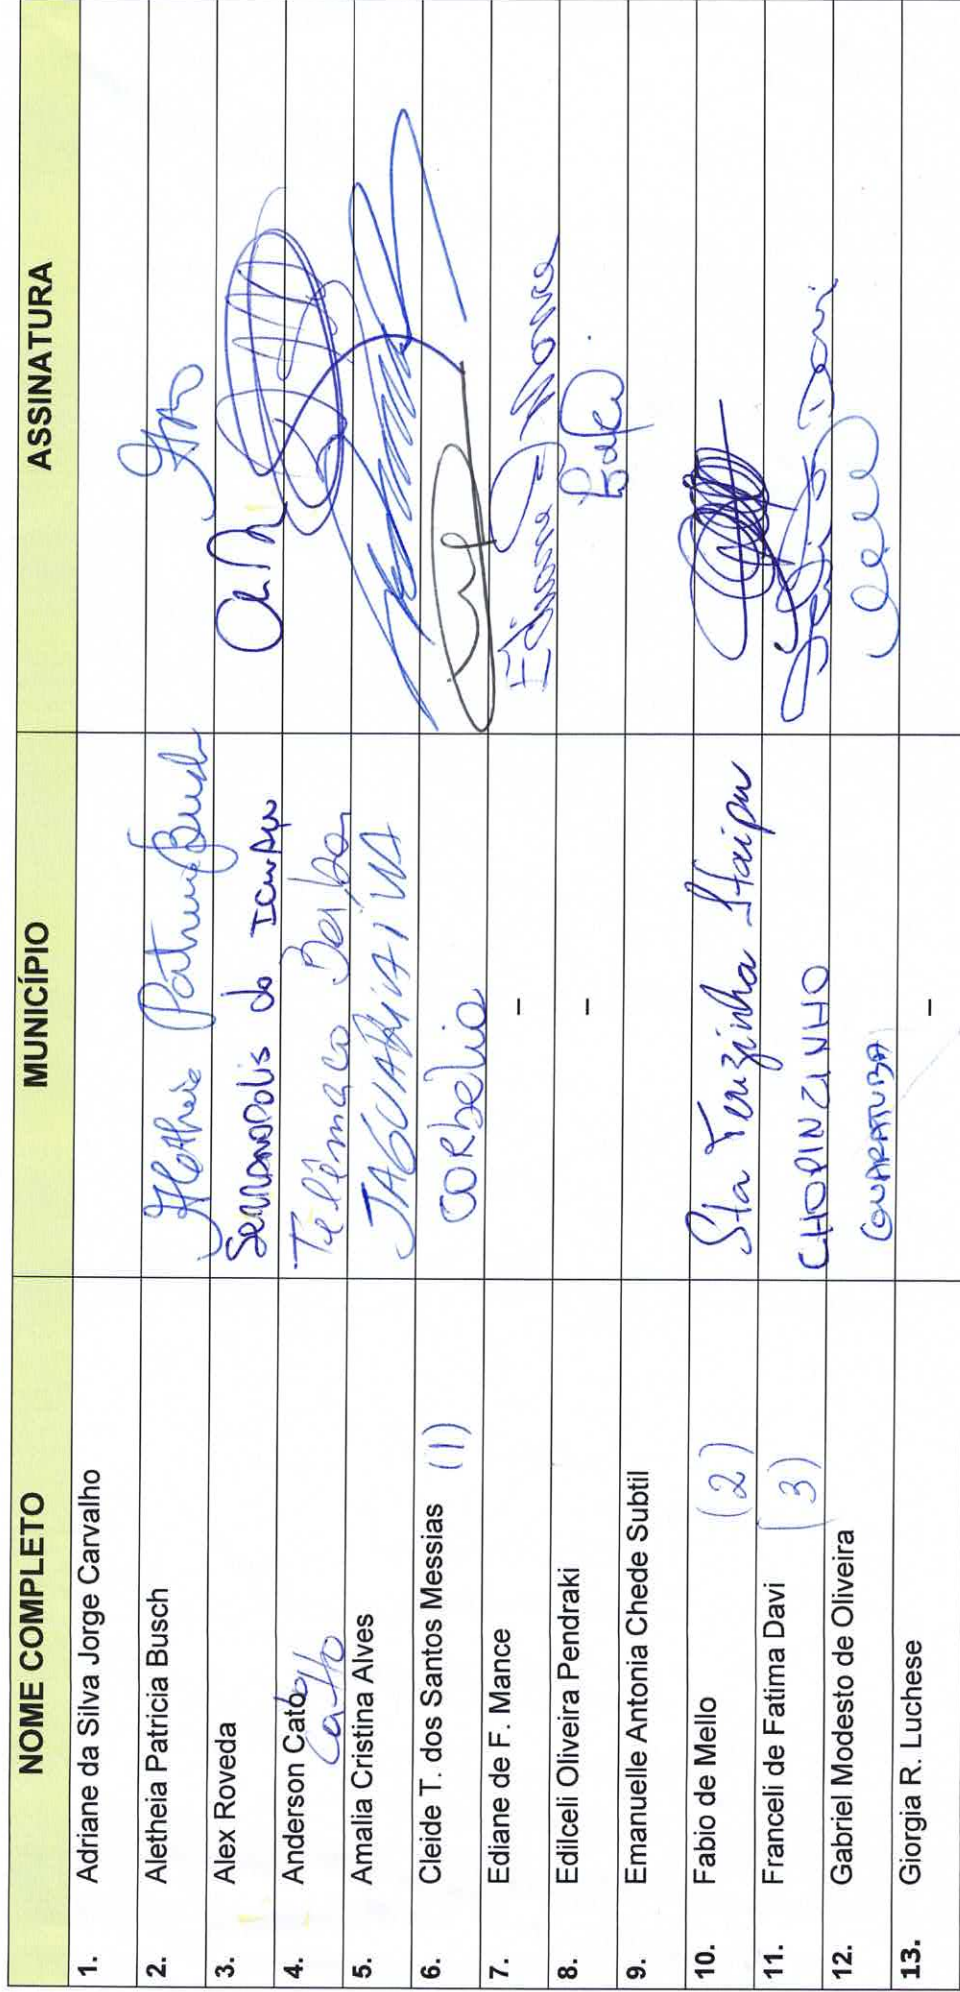 NOME COMPLETO MUNICÍPIO ASSINATURA
1. Adriane da Silva Jorge Carvalho
2. Aletheia Patricia Busch Aletheia Patricia Busch
3. Alex Roveda Serranopolis do Iguaçu
4. Anderson Cato Telêmaco Borba
Catto
5. Amalia Cristina Alves JAGUARIAIVA
6. Cleide T. dos Santos Messias (1) CORbelia
7. Ediane de F. Mance - Ediane Mance
8. Edilceli Oliveira Pendraki -
9. Emanuelle Antonia Chede Subtil
10. Fabio de Mello (2) Sta Terezinha Itaipu
11. Franceli de Fatima Davi (3) CHOPINZINHO Davi
12. Gabriel Modesto de Oliveira GUARATUBA
13. Giorgia R. Luchese -